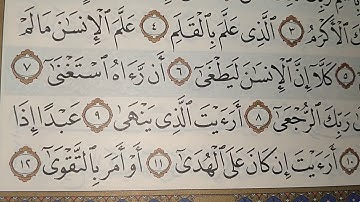 ٱلْأَكْرَمُ ٣ ٱلَّذِى عَلَّمَ بِٱلْقَلَمِ ٤ عَلَّمَ ٱلْإِنسَٰنَ مَا لَمْ
٥ كَلَّآ إِنَّ ٱلْإِنسَٰنَ لَيَطْغَىٰٓ ٦ أَن رَّءَاهُ ٱسْتَغْنَىٰٓ ٧
رَبِّكَ ٱلرُّجْعَىٰٓ ٨ أَرَءَيْتَ ٱلَّذِى يَنْهَىٰ ٩ عَبْدًا إِذَا
١٠ أَرَءَيْتَ إِن كَانَ عَلَى ٱلْهُدَىٰٓ ١١ أَوْ أَمَرَ بِٱلتَّقْوَىٰٓ ١٢